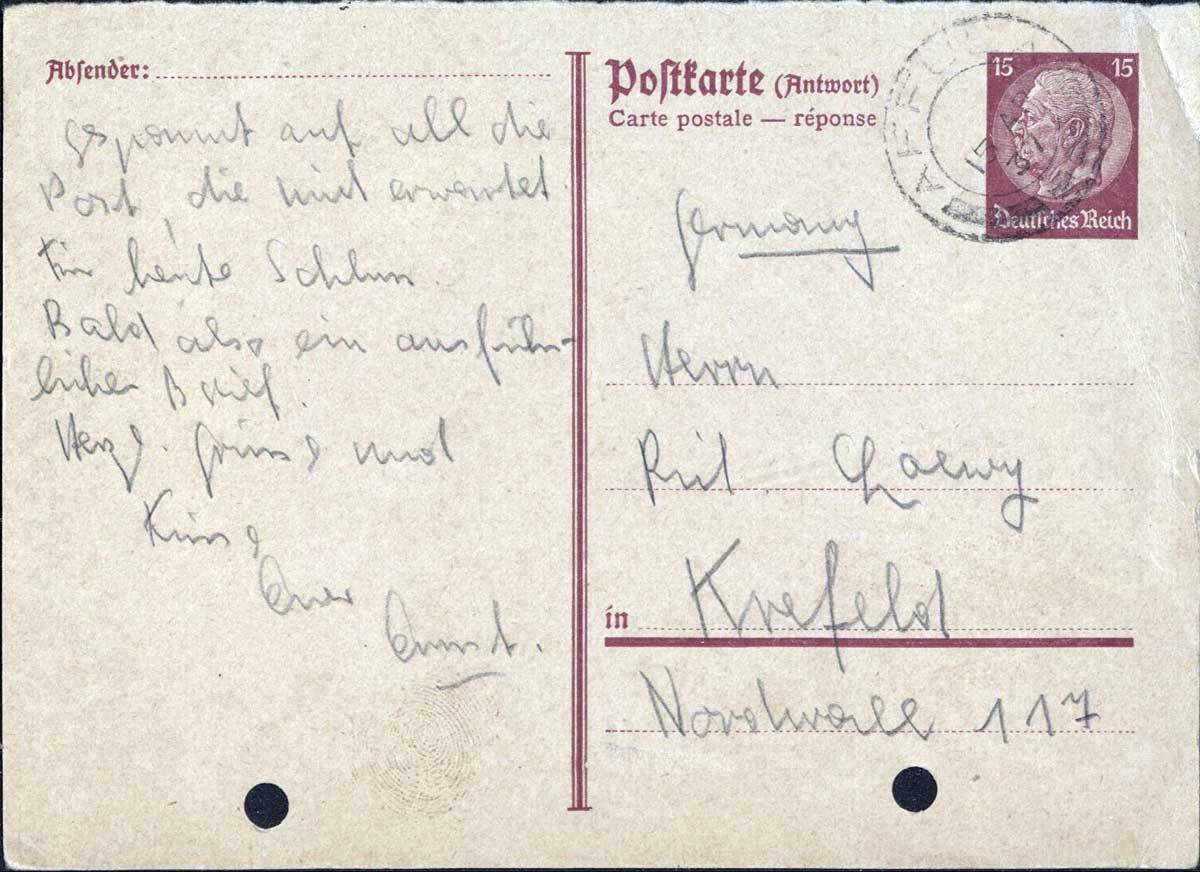 Absender:
gespannt auf all die
Post, die mich erwartet.
Für heute Schluss.
Bald also ein ausführ-
licher Brief.
Herzl. Grüsse und
Küsse
Euer
Ernst.
Postkarte (Antwort)
Carte postale — réponse
15 15
Deutsches Reich
Germany
Herrn
Loewy
in Krefeld
Nordwall 117